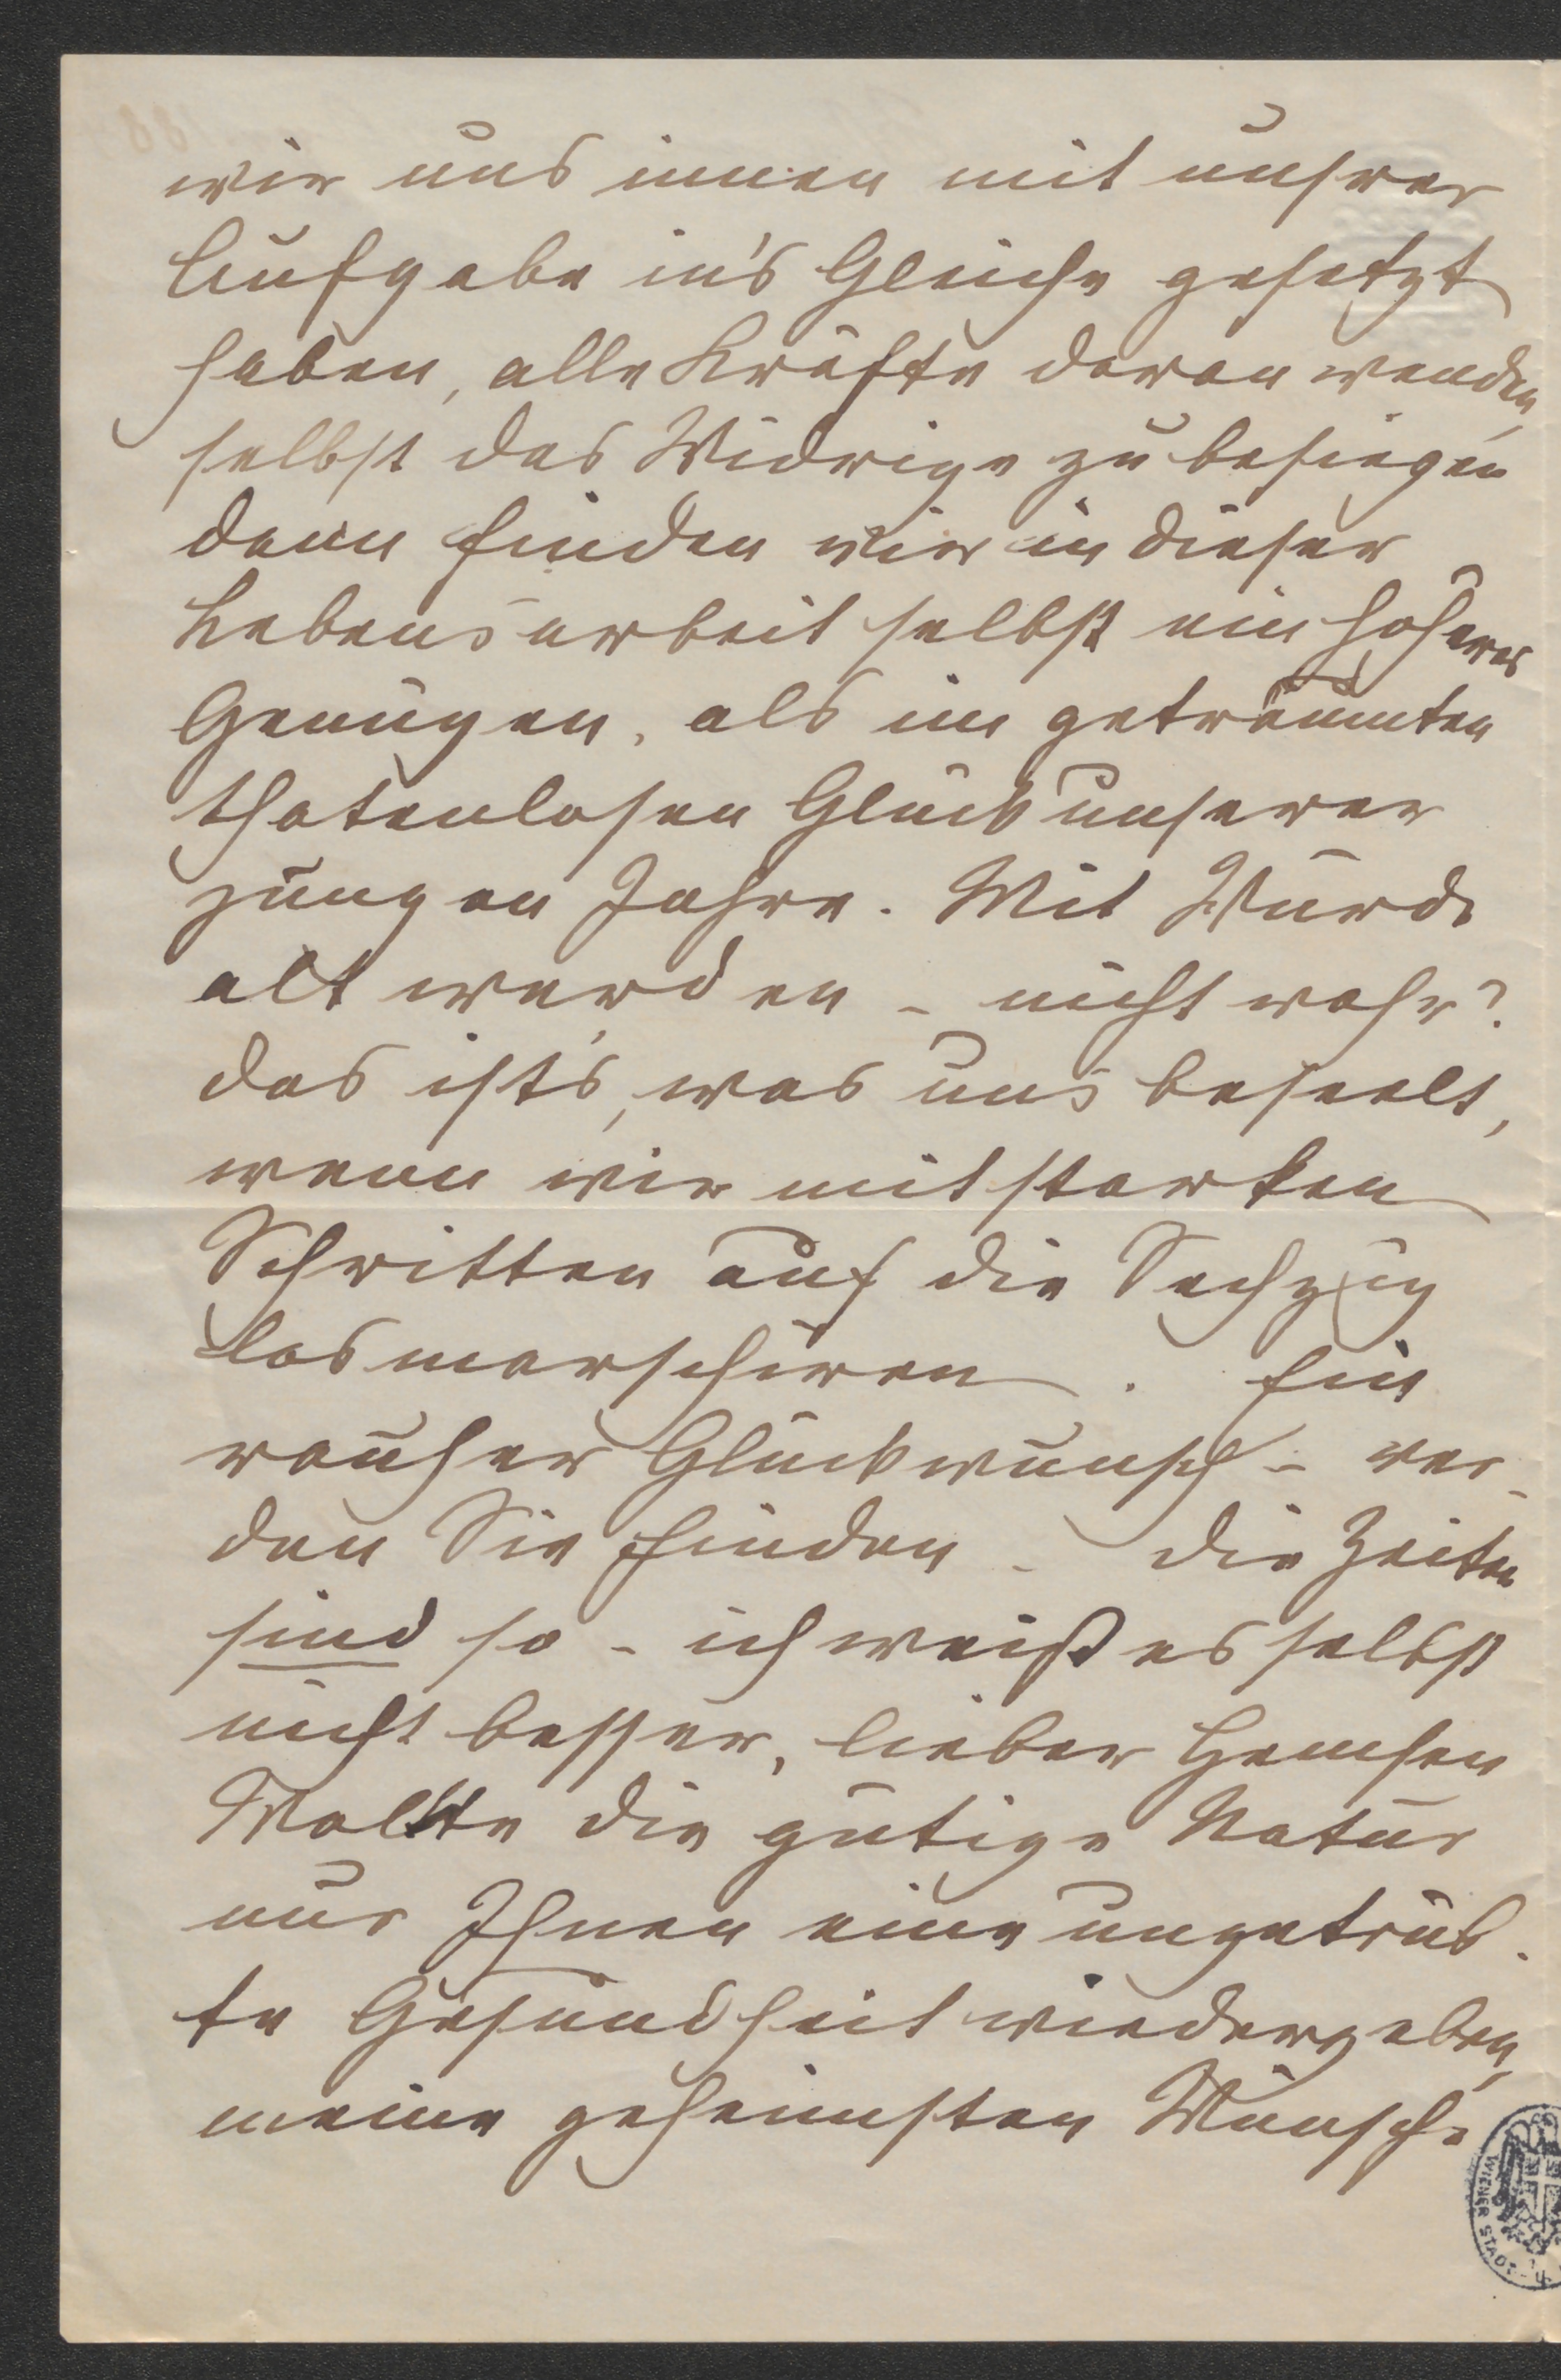 wir uns innen mit unsrer
Aufgabe in's Gleiche gesetzt
haben, alle Kräfte daran wenden,
selbst das Widrige zu besiegen
dann finden wir in dieser
Lebensarbeit selbst ein höheres
Genügen, als im geträumten
thatenlosen Glück unserer
jungen Jahre. Mit Würde
alt werden - nicht wahr?
das ist's, was uns beseelt,
wenn wir mit starken
Schritten auf die Sechzig
losmarschiren. Ein
rauher Glückwunsch - wer-
den Sie finden - die Zeiten
sind so - ich weiß es selbst
nicht besser, lieber Hemsen
Wollte die gütige Natur
nur Ihnen eine ungetrüb-
te Gesundheit wiedergeben,
meine geheimsten Wünsche
WIENER STADT-